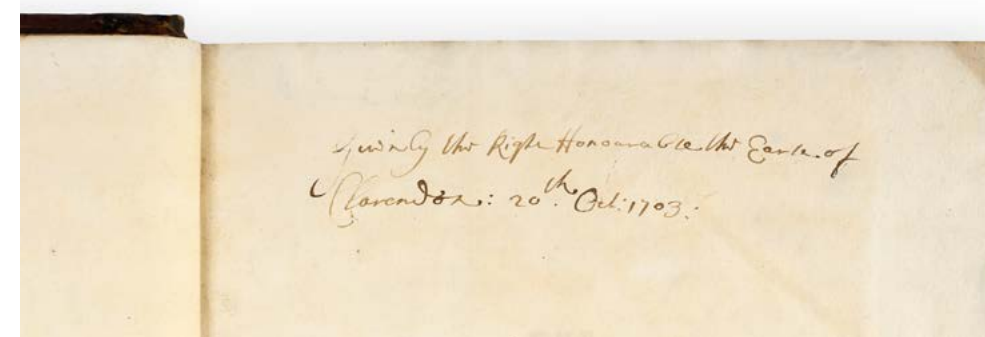 Given by the Right Honourable the Earle of
Clarendon: 20th. Oct: 1703: